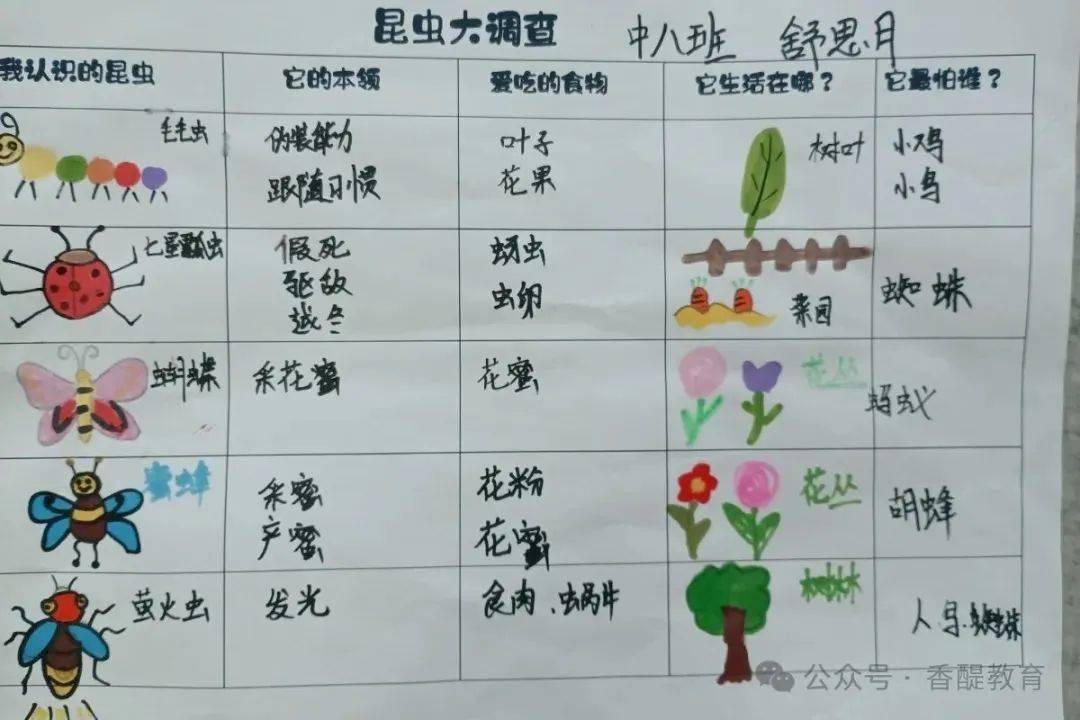 昆虫大调查 中八班 舒思月
我认识的昆虫 它的本领 爱吃的食物 它生活在哪? 它最怕谁?
毛毛虫 伪装能力 叶子 树叶 小鸡
跟随习惯 花果 小鸟
七星瓢虫 假死 蚜虫
驱敌 虫卵 菜园 蜘蛛
越冬
蝴蝶 采花蜜 花蜜 花丛 蚂蚁
蜜蜂 采蜜 花粉 花丛 胡蜂
产蜜 花蜜
萤火虫 发光 食肉、蜗牛 树林 人、鸟、蜘蛛
公众号·香醍教育